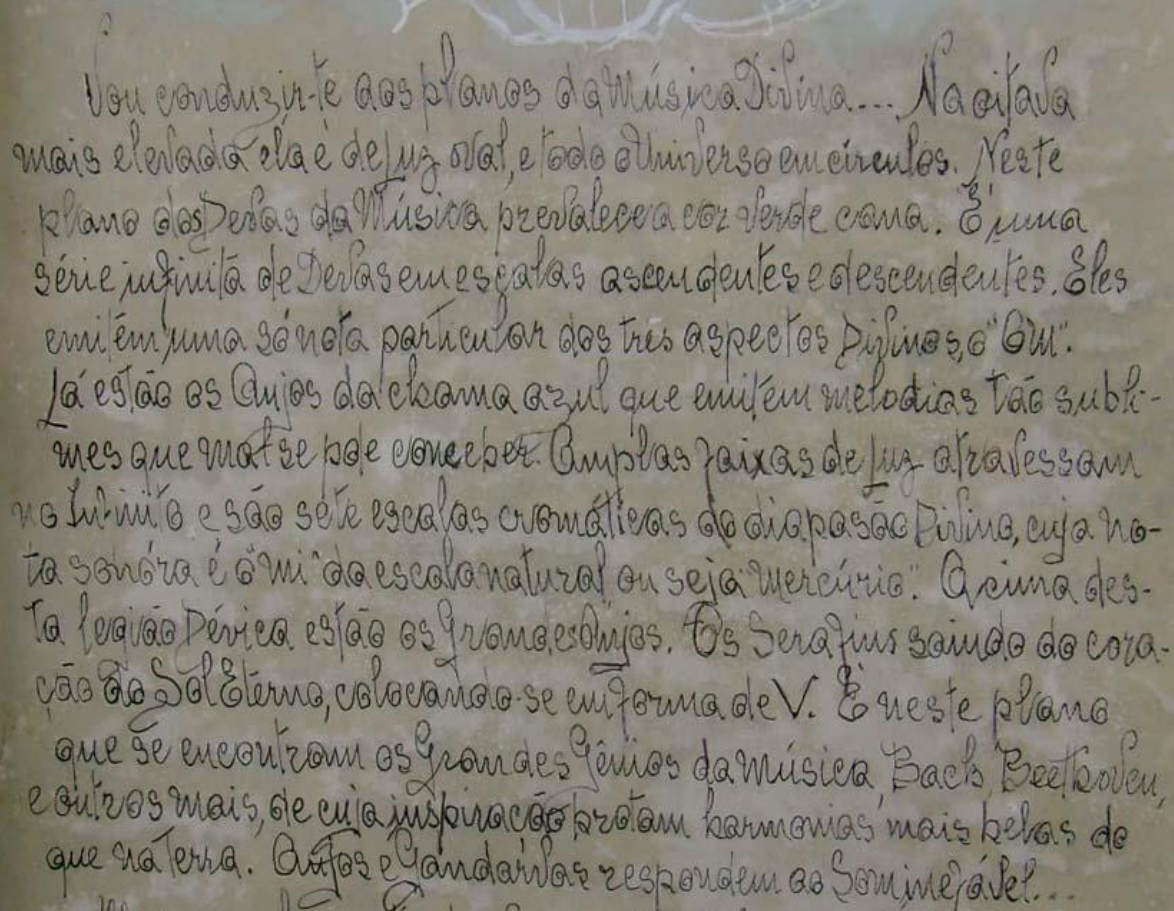 Vou conduzir-te aos planos da Música Divina... Na oitava
mais elevada ela é de Luz oval, e todo o Universo em círculos. Neste
plano dos Devas da Música prevalece a cor verde cana. É uma
série infinita de Devas em escalas ascendentes e descendentes. Eles
emitem uma só nota particular dos tres aspectos Divinos, o "OM".
Lá estão os Anjos da chama azul que emitem melodias tão subli-
mes que mal se pde conceber. Amplas faixas de luz atravessam
no Infinito e são sete escalas cromáticas do diapasão Divino, cuja no-
ta sonóra é o "mi" da escala natural ou seja "Mercúrio". Acima des-
ta legião Dévica estão os Grandes Anjos. Os Serafins saindo do cora-
ção do Sol Eterno, colocando-se em forma de V. É neste plano
que se encontram os Grandes Gênios da música, Bach, Beethoven,
e outros mais, de cuja inspiração brotam harmonias mais belas do
que na terra. Anjos e Gandarvas respondem ao Som inefável...